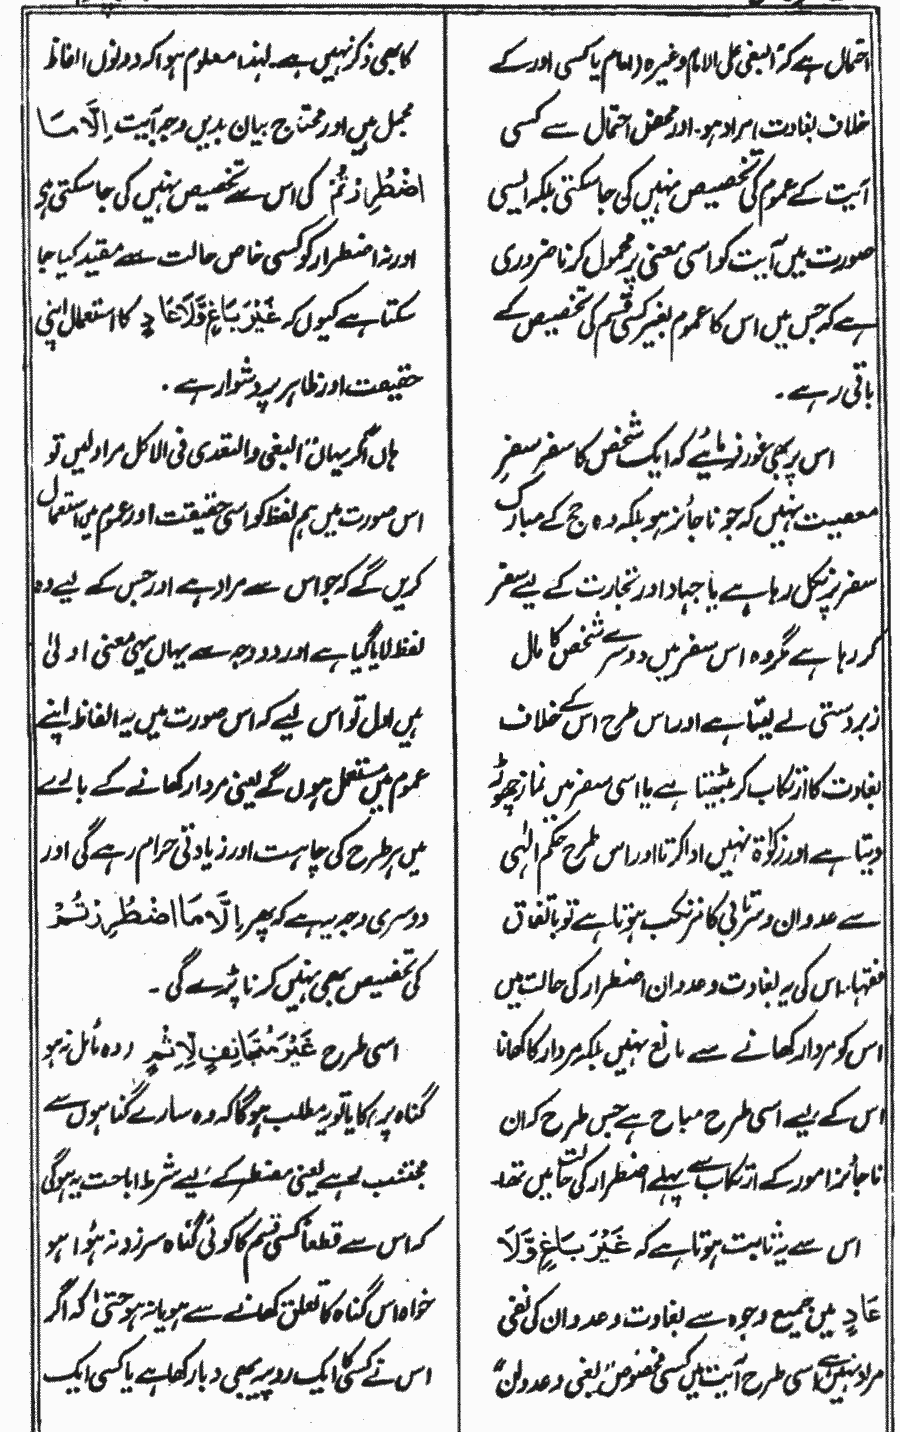 احتمال ہے کہ "البغی علی الامام وغیرہ (امام یا کسی اور کے
خلاف بغاوت) مراد ہو۔ اور محض احتمال سے کسی
آیت کے عموم کی تخصیص نہیں کی جا سکتی بلکہ ایسی
صورت میں آیت کو اسی معنی پر محمول کرنا ضروری
ہے کہ جس میں اس کا عموم بغیر کسی قسم کی تخصیص کے
باقی رہے۔
اس پر بھی غور فرمائیے کہ ایک شخص کا سفر سفرِ
معصیت نہیں کہ جو ناجائز ہو بلکہ وہ حج کے مبارک
سفر پر نکل رہا ہے یا جہاد اور تجارت کے لیے سفر
کر رہا ہے مگر وہ اس سفر میں دوسرے شخص کا مال
زبردستی لے لیتا ہے اور اس طرح اس کے خلاف
بغاوت کا ارتکاب کر بیٹھتا ہے یا اسی سفر میں نماز چھوڑ
دیتا ہے اور زکوٰۃ نہیں ادا کرتا اور اس طرح حکم الٰہی
سے عدوان و سرتابی کا مرتکب ہوتا ہے تو باتفاق
فقہاء اس کی یہ بغاوت و عدوان اضطرار کی حالت میں
اس کو مردار کھانے سے مانع نہیں بلکہ مردار کا کھانا
اس کے لیے اسی طرح مباح ہے جس طرح کہ ان
ناجائز امور کے ارتکاب سے پہلے اضطرار کی حالت میں تھا۔
اس سے یہ ثابت ہوتا ہے کہ غَیْرَ بَاغٍ وَّلَا
عَادٍ میں جمیع وجوہ سے بغاوت و عدوان کی نفی
مراد نہیں ہے اسی طرح آیت میں کسی مخصوص "بغی و عدوان"
کا بھی ذکر نہیں ہے۔ لہٰذا معلوم ہوا کہ دونوں الفاظ
مجمل ہیں اور محتاج بیان بدیں وجہ آیت اِلَّا مَا
اضْطُرِرْتُمْ کی اس سے تخصیص نہیں کی جا سکتی ہے
اور نہ اضطرار کو کسی خاص حالت سے مقید کیا جا
سکتا ہے کیوں کہ غَیْرَ بَاغٍ وَّلَا عَادٍ کا استعمال اپنی
حقیقت اور ظاہر پر دشوار ہے۔
ہاں اگر یہاں "البغی والتعدی فی الاکل مراد لیں تو
اس صورت میں ہم لفظ کو اسی حقیقت اور عموم میں استعمال
کریں گے کہ جو اس سے مراد ہے اور جس کے لیے وہ
لفظ لایا گیا ہے اور دو وجہ سے یہاں یہی معنی اولیٰ
ہیں اول تو اس لیے کہ اس صورت میں یہ الفاظ اپنے
عموم میں مستعمل ہوں گے یعنی مردار کھانے کے بارے
میں ہر طرح کی چاہت اور زیادتی حرام رہے گی اور
دوسری وجہ یہ ہے کہ پھر اِلَّا مَا اضْطُرِرْتُمْ
کی تخصیص بھی نہیں کرنا پڑے گی۔
اسی طرح غَیْرَ مُتَجَانِفٍ لِّاِثْمٍ (وہ مائل نہ ہو
گناہ پر) کا یا تو یہ مطلب ہوگا کہ وہ سارے گناہوں سے
مجتنب ہے یعنی مضطر کے لیے شرط اباحت یہ ہوگی
کہ اس سے قطعاً کسی قسم کا کوئی گناہ سرزد نہ ہوا ہو
خواہ اس گناہ کا تعلق کھانے سے ہو یا نہ ہو حتیٰ کہ اگر
اس نے کسی کا ایک روپیہ بھی دبا رکھا ہے یا کسی ایک